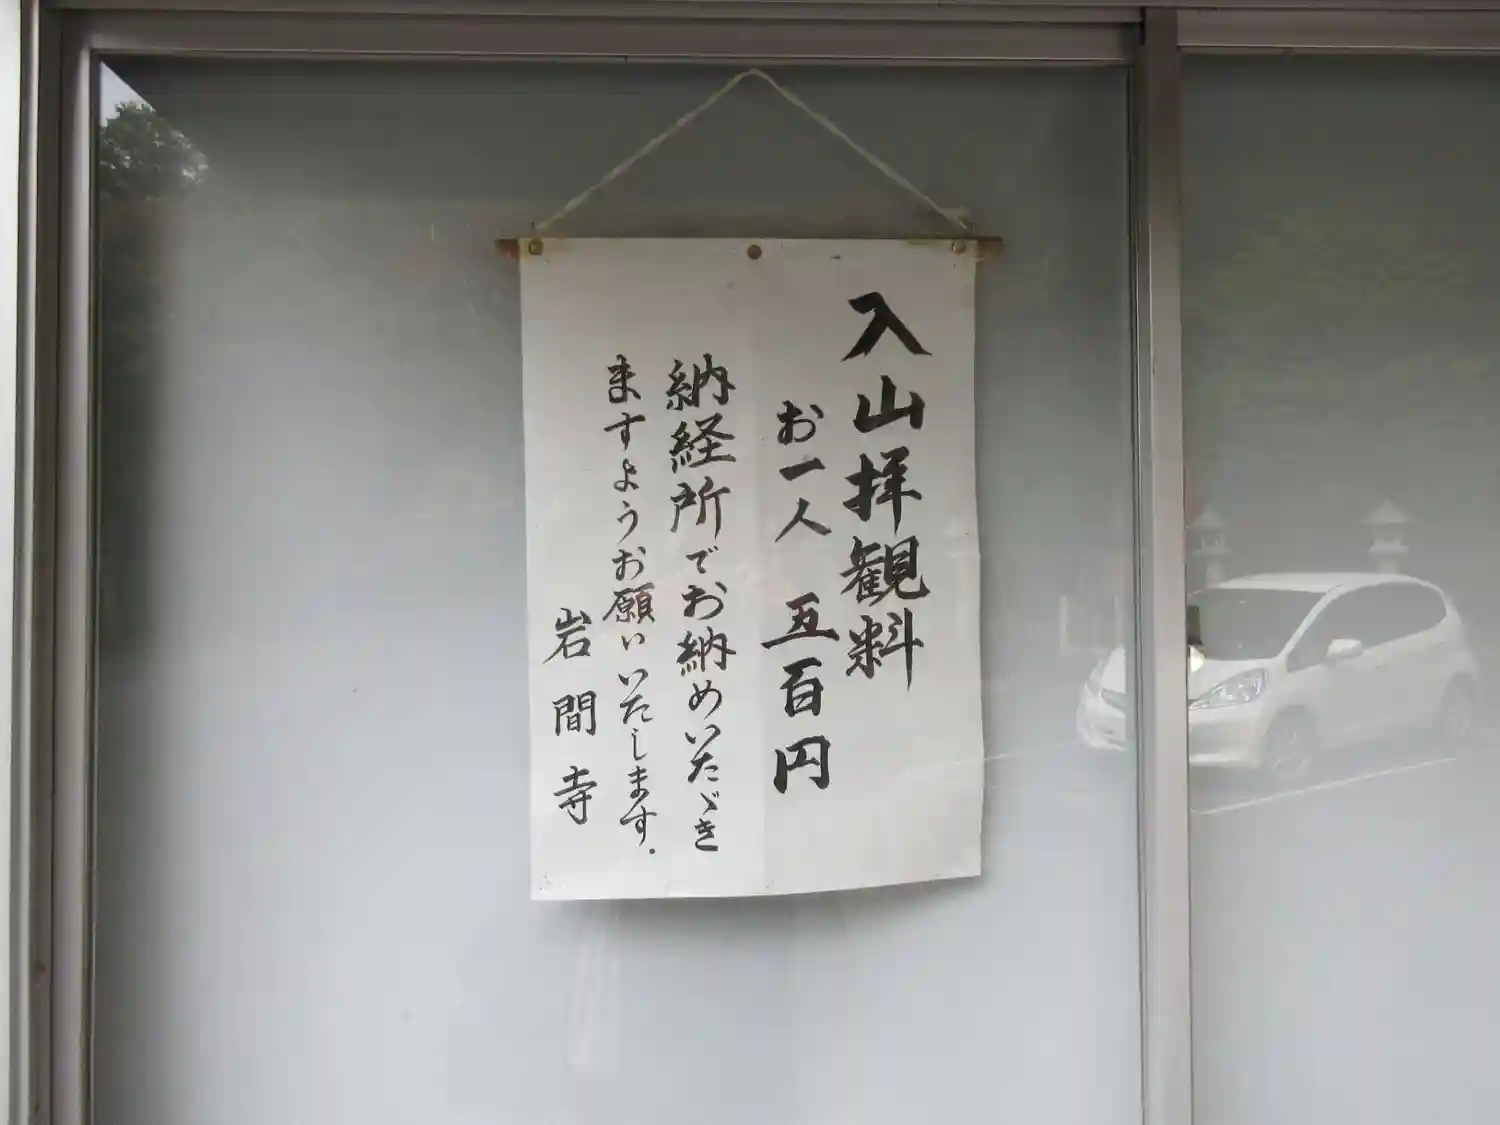 入山拝観料
お一人 五百円
納経所でお納めいたゞき
ますようお願いいたします.
岩間寺